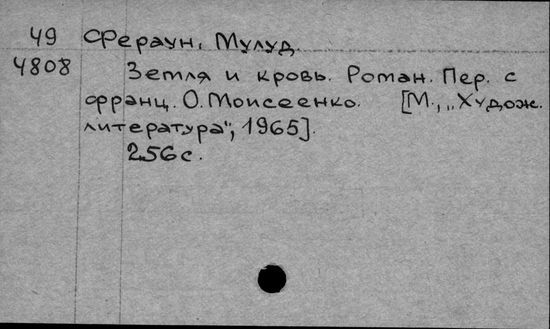 49 Фераун, Мулуд.
4808 Земля и кровь. Роман. Пер. с
франц. О. Моисеенко. [М., „Худож.
литература", 1965].
256 с.